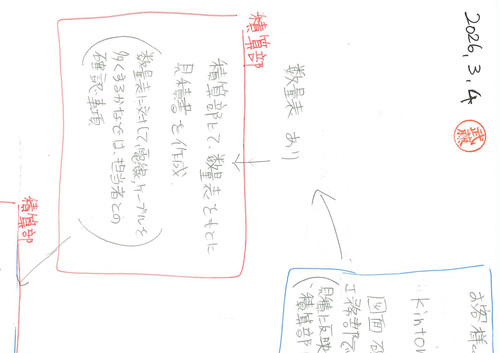 2026.3.4
武藤
お客様
kinton
図面
工務部
見積に反映
積算部
数量表 あり
積算部
積算部にて、数量表をもとに
見積書を作成。
数量表に対して、電線、ケーブルを
多くするかなどは、担当者との
確認事項
積算部